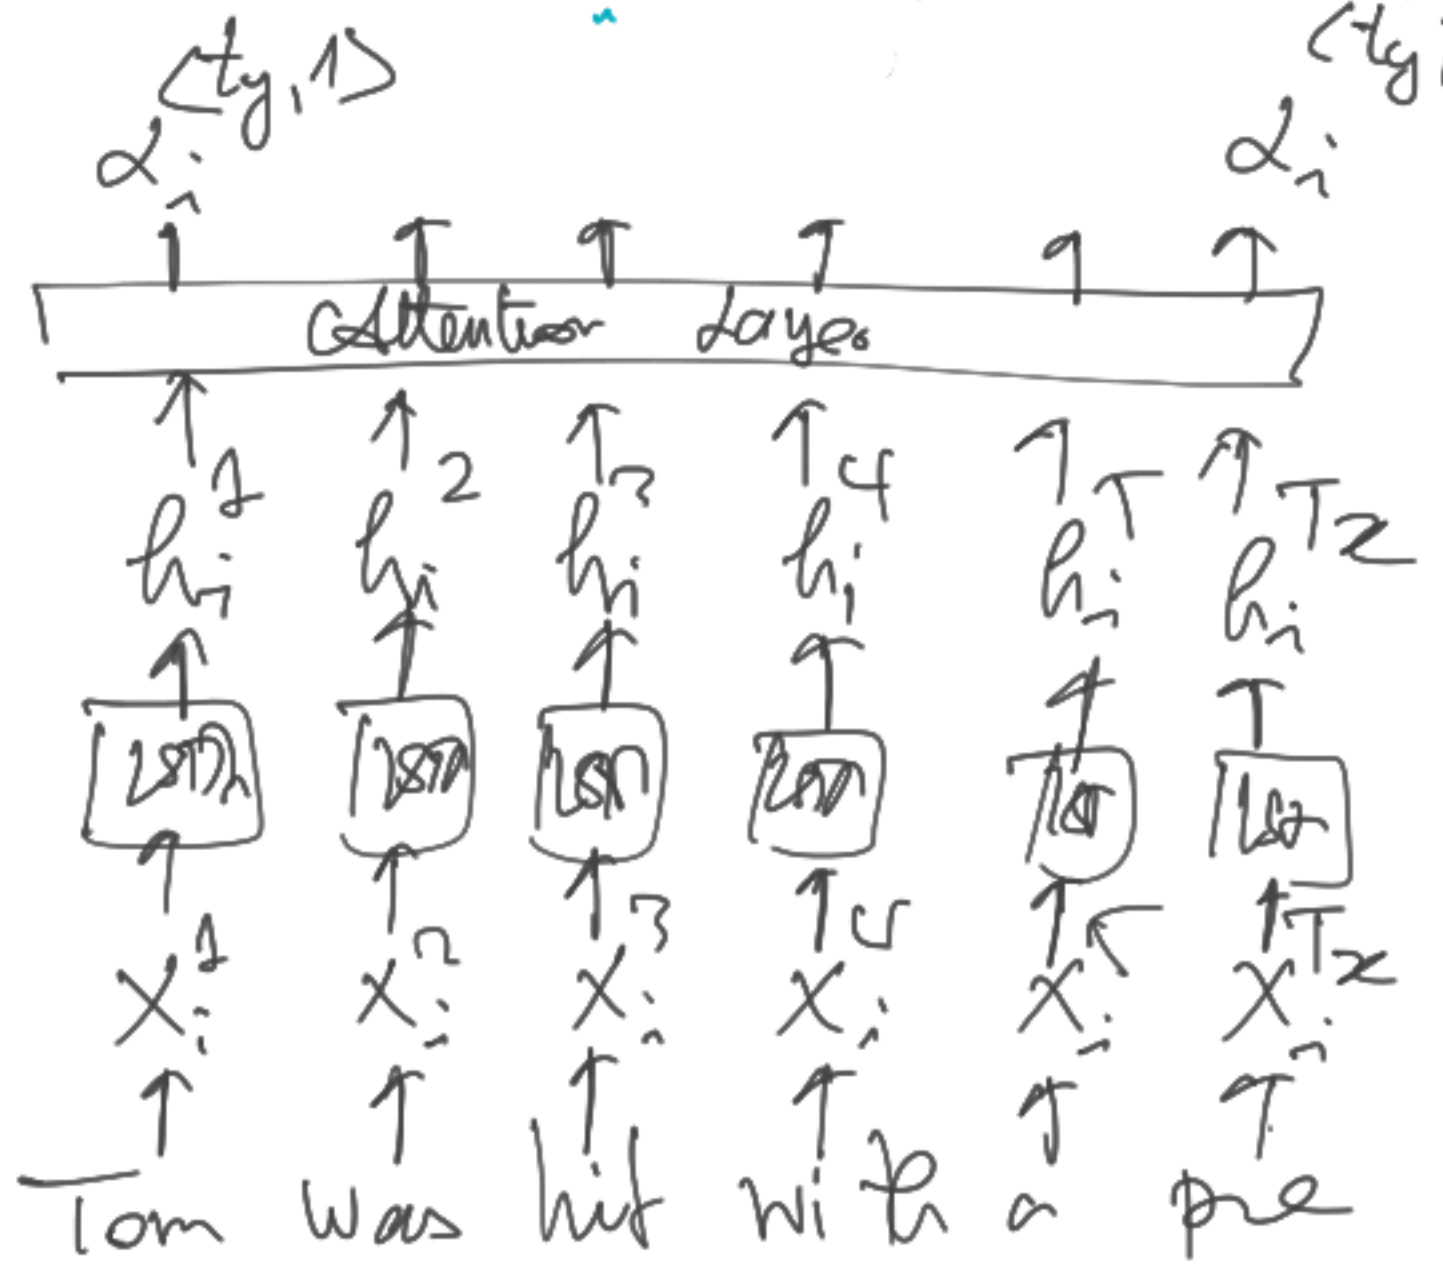 <ty,1> <ty,
αi αi
Attention Layer
hi 1 hi 2 hi 3 hi 4 hi T hi Tx
LSTM LSTM LSTM LSTM
xi 1 xi 2 xi 3 xi 4 xi xi Tx
Tom was hit with a pie